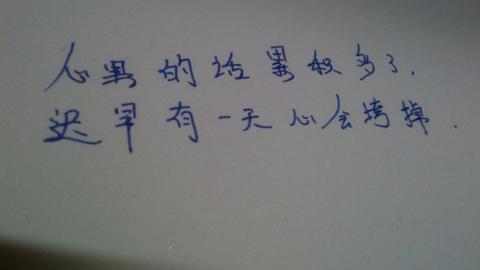 心里的话累积多了.
迟早有一天心会垮掉.